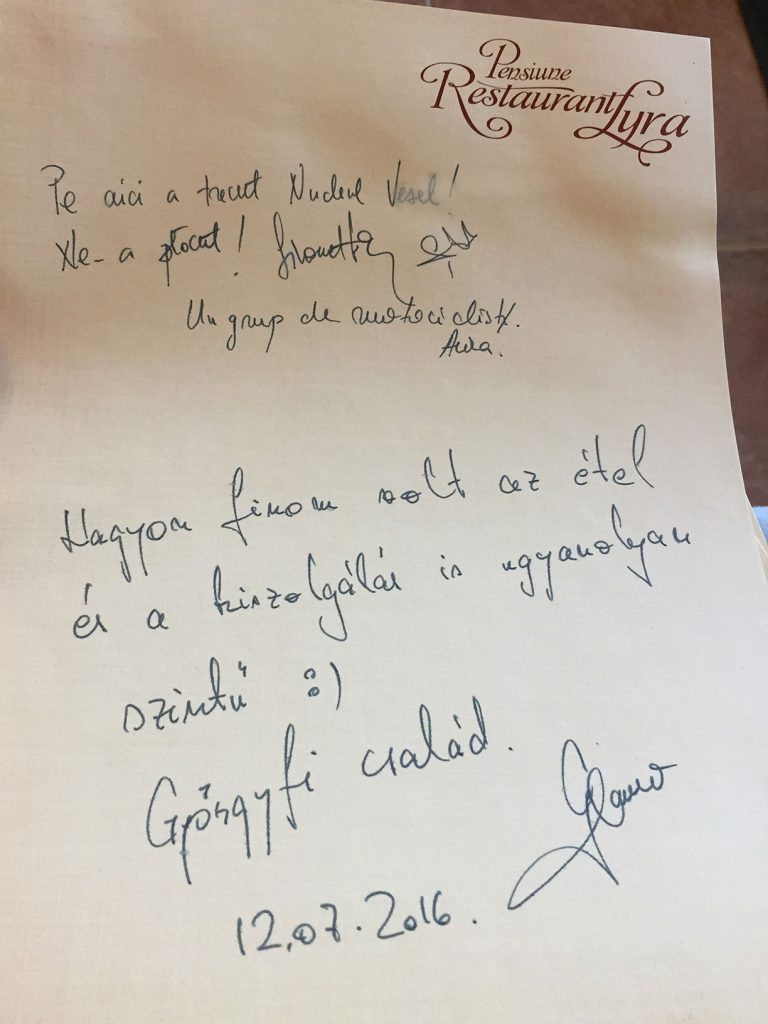 Pensiune
Restaurant Lyra
Pe aici a trecut Nucleul Vesel!
Ne-a plăcut!
Un grup de motocicliști.
Aura.
Nagyon finom volt az étel
és a kiszolgálás is ugyanolyan
szintű :)
Györgyfi család.
12.07.2016.